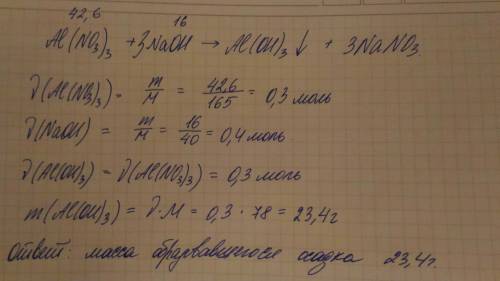 42,6 16
Al(NO3)3 + 3NaOH → Al(OH)3↓ + 3NaNO3
ν(Al(NO3)3) = m/M = 42,6/165 = 0,3 моль
ν(NaOH) = m/M = 16/40 = 0,4 моль
ν(Al(OH)3) = ν(Al(NO3)3) = 0,3 моль
m(Al(OH)3) = ν·M = 0,3 · 78 = 23,4г
Ответ: масса образвавшегося осадка 23,4г.